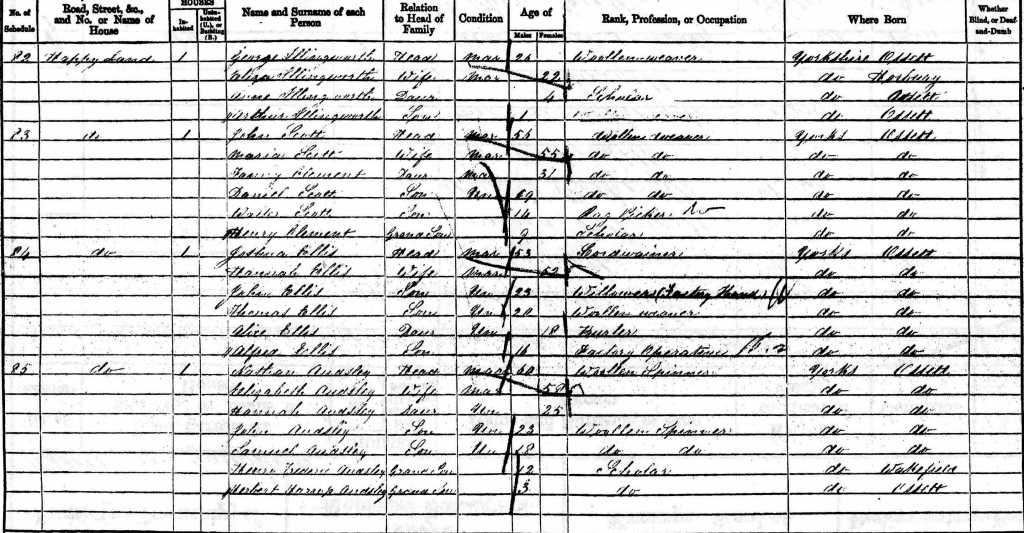 No. of Schedule | Road, Street, &c., and No. or Name of House | HOUSES In-habited | Unin-habited (U.), or Building (B.) | Name and Surname of each Person | Relation to Head of Family | Condition | Age of Males | Females | Rank, Profession, or Occupation | Where Born | Whether Blind, or Deaf-and-Dumb
82 Happy Land 1 George Illingworth Head Mar 26 Woollen weaver Yorkshire Ossett
Eliza Illingworth Wife Mar 22 do Horbury
Anne Illingworth Daur 4 Scholar do Ossett
Arthur Illingworth Son 1 do Ossett
83 do 1 John Scott Head Mar 56 Woollen weaver Yorks Ossett
Maria Scott Wife Mar 55 do do do do
Fanny Clement Daur Mar 31 do do do do
Daniel Scott Son Un 19 do do do do
Walter Scott Son 14 Rag Picker do do
Henry Clement Grand Son 9 Scholar do do
84 do 1 Joshua Ellis Head Mar 53 Cordwainer Yorks Ossett
Hannah Ellis Wife Mar 52 do do
John Ellis Son Un 23 (Factory Hand) do do
Thomas Ellis Son Un 20 Woollen weaver do do
Alice Ellis Daur Un 18 Burler do do
Alfred Ellis Son 16 Factory Operative do do
85 do 1 Nathan Audsley Head Mar 60 Woollen Spinner Yorks Ossett
Elizabeth Audsley Wife Mar 58 do do
Hannah Audsley Daur Un 25 do do
John Audsley Son Un 23 Woollen Spinner do do
Samuel Audsley Son Un 18 do do do do
Henry Frederic Audsley Grand Son 12 Scholar do Wakefield
Herbert Harrop Audsley Grand Son 3 do do Ossett